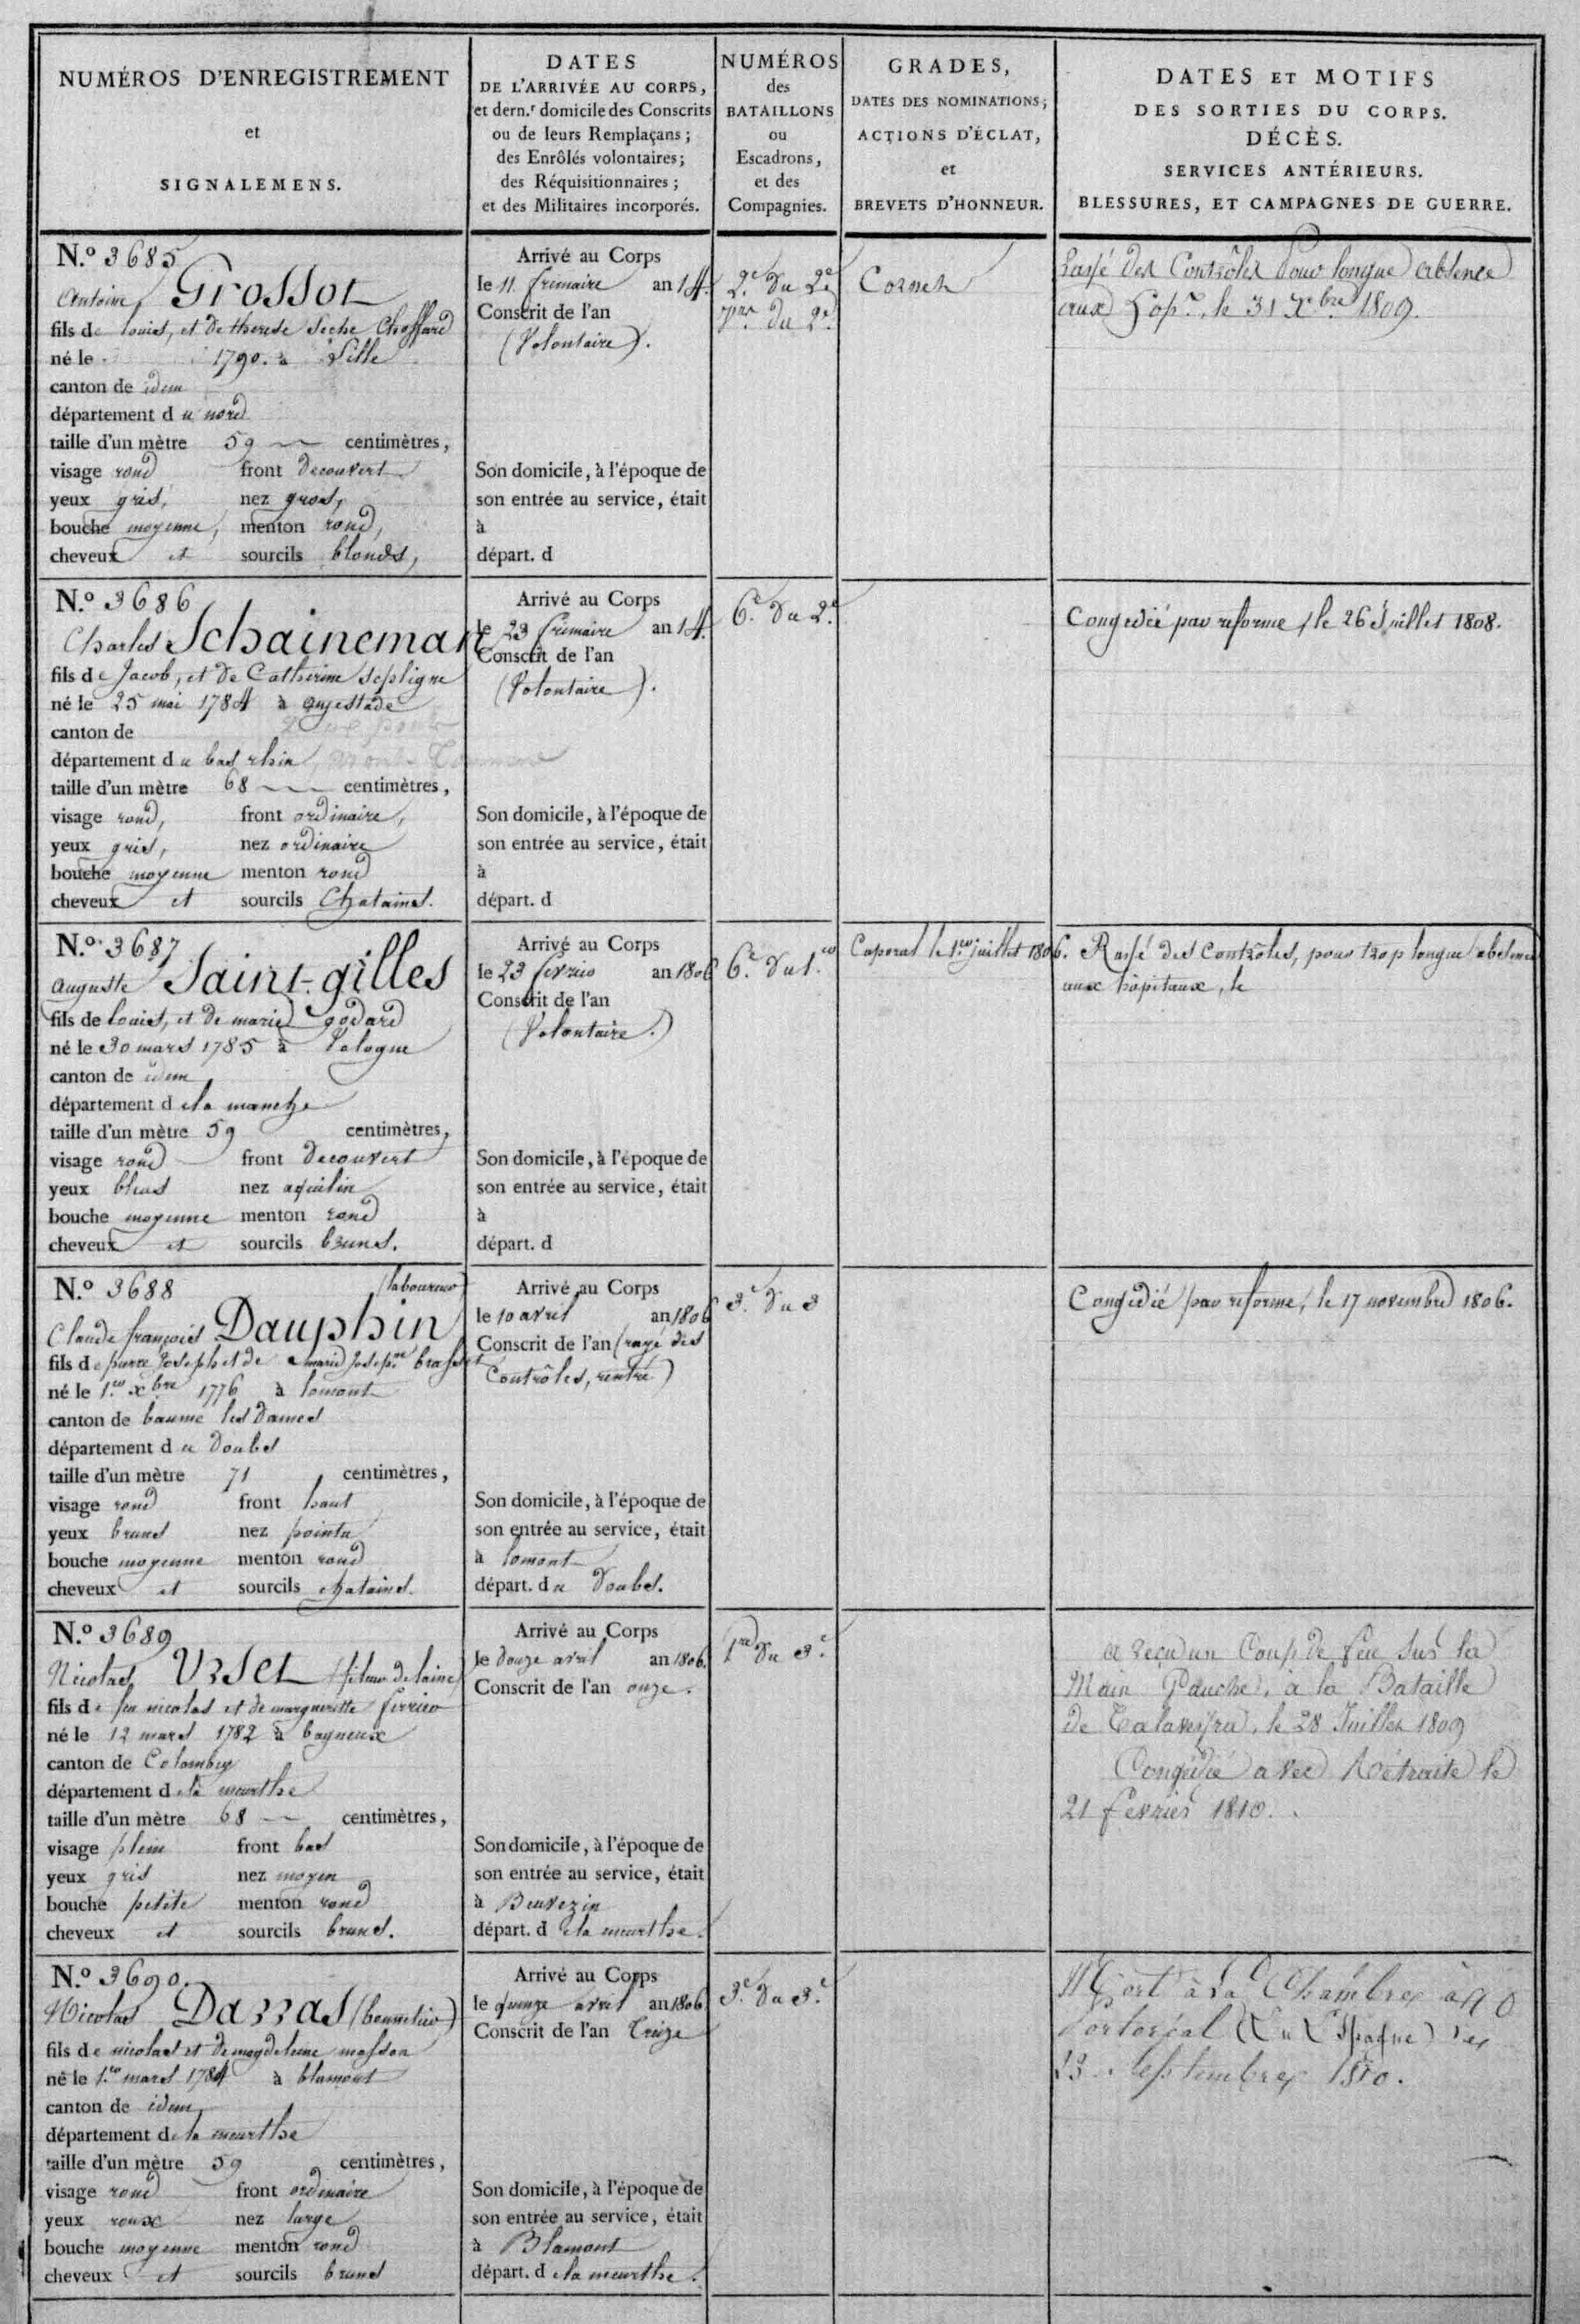 NUMÉROS D'ENREGISTREMENT
et
SIGNALEMENS.
DATES
DE L'ARRIVÉE AU CORPS,
et dern.r domicile des Conscrits
ou de leurs Remplaçans;
des Enrôlés volontaires;
des Réquisitionnaires;
et des Militaires incorporés.
NUMÉROS
des
BATAILLONS
ou
Escadrons,
et des
Compagnies.
GRADES,
DATES DES NOMINATIONS;
ACTIONS D'ÉCLAT,
et
BREVETS D'HONNEUR.
DATES ET MOTIFS
DES SORTIES DU CORPS.
DÉCÈS.
SERVICES ANTÉRIEURS.
BLESSURES, ET CAMPAGNES DE GUERRE.
N.o 3685
Antoine Grossot
fils de louis, et de therese Seche Choffard
né le 1790. à Lille
canton de idem
département du nord
taille d'un mètre 59 centimètres,
visage rond front decouvert
yeux gris, nez gros,
bouche moyenne, menton rond,
cheveux et sourcils blonds,
Arrivé au Corps
le 11 frimaire an 14.
Conscrit de l'an
(Volontaire).
Son domicile, à l'époque de
son entrée au service, était
à
départ. d
2.e du 2.e
du 2.e
Cornet
Rayé des Contrôles Pour longue absence
aux hôp.x, le 31 Xbre 1809.
N.o 3686
Charles Schaineman
fils de Jacob, et de Catherine
né le 25 mai 1784 à
canton de
département du bas rhin
taille d'un mètre 68 centimètres,
visage rond, front ordinaire,
yeux gris, nez ordinaire
bouche moyenne menton rond
cheveux et sourcils Chatains.
Arrivé au Corps
le 23 frimaire an 14.
Conscrit de l'an
(Volontaire).
Son domicile, à l'époque de
son entrée au service, était
à
départ. d
6.e du 2.e
Congedié par reforme, le 26 Juillet 1808.
N.o 3687
Auguste Saint-gilles
fils de louis, et de marie godard
né le 30 mars 1785 à Valogne
canton de idem
département de la manche
taille d'un mètre 59 centimètres,
visage rond front decouvert
yeux bleus nez aquilin
bouche moyenne menton rond
cheveux et sourcils bruns.
Arrivé au Corps
le 23 fevrier an 1806
Conscrit de l'an
(Volontaire.)
Son domicile, à l'époque de
son entrée au service, était
à
départ. d
6.e du 1.er
Caporal le 1.er juillet 1806.
Rayé des Contrôles, pour trop longue absence
aux hôpitaux, le
N.o 3688 laboureur
Claude françois Dauphin
fils de pierre Joseph et de marie
né le 1.er xbre 1776 à lomont
canton de baume les Dames
département du Doubs
taille d'un mètre 71 centimètres,
visage rond front haut
yeux bruns nez pointu
bouche moyenne menton rond
cheveux et sourcils chatains.
Arrivé au Corps
le 10 avril an 1806
Conscrit de l'an (rayé des
Contrôles, rentré)
Son domicile, à l'époque de
son entrée au service, était
à lomont
départ. du Doubs.
3.e du 3
Congedié par reforme, le 17 novembre 1806.
N.o 3689
Nicolas Urset (fileur de laine)
fils de feu nicolas et de margueritte ferrier
né le 12 mars 1782 à bagneux
canton de Colombey
département de la meurthe
taille d'un mètre 68 centimètres,
visage plein front bas
yeux gris nez moyen
bouche petite menton rond
cheveux et sourcils bruns.
Arrivé au Corps
le douze avril an 1806.
Conscrit de l'an onze.
Son domicile, à l'époque de
son entrée au service, était
à Beuvezin
départ. de la meurthe.
1re du 3.e
a reçu un Coup de feu sur la
Main Gauche, à la Bataille
de Talaveyra, le 28 Juillet 1809
Congédié avec Rétraite le
21 fevrier 1810.
N.o 3690.
Nicolas Darras (bonnetier)
fils de nicolas et de magdeleine masson
né le 1.er mars 1784 à blamont
canton de idem
département de la meurthe
taille d'un mètre 59 centimètres,
visage rond front ordinaire
yeux roux nez large
bouche moyenne menton rond
cheveux et sourcils bruns
Arrivé au Corps
le quinze avril an 1806
Conscrit de l'an treize
Son domicile, à l'époque de
son entrée au service, était
à Blamont
départ. de la meurthe.
3.e du 3.e
Mort à la Chambre à
(En Espagne) le
13 Septembre 1810.